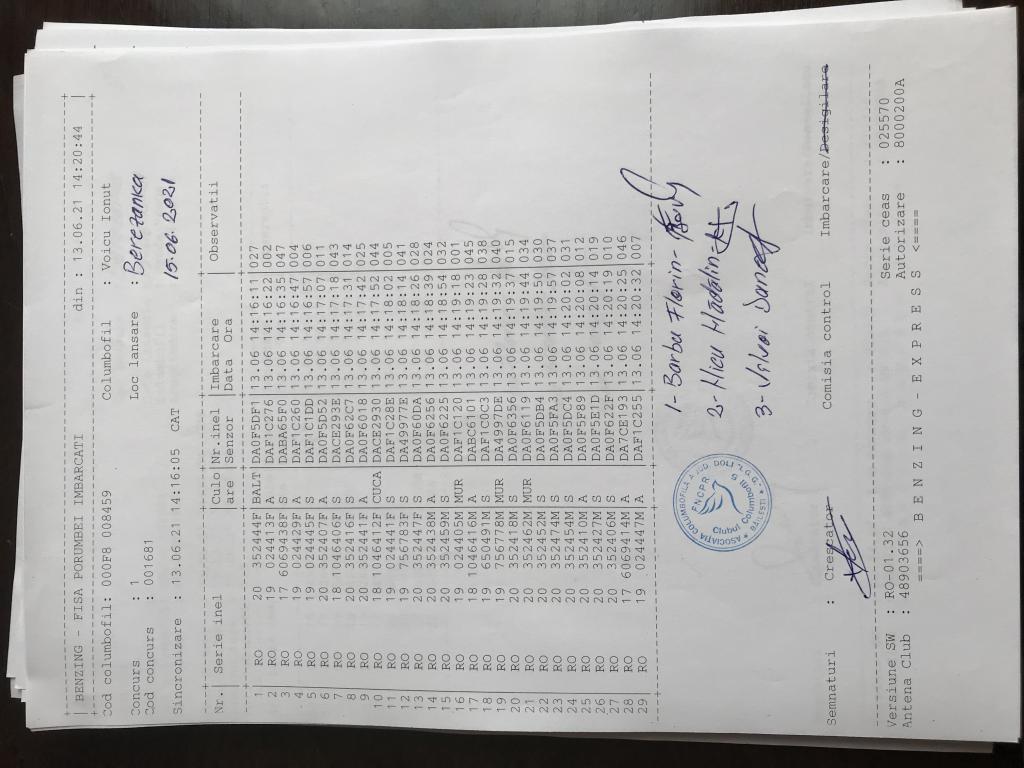 BENZING - FISA PORUMBEI IMBARCATI din : 13.06.21 14:20:44
Cod columbofil: 000F8 008459 Columbofil : Voicu Ionut
Concurs : 1 Loc lansare : Berezanka
Cod concurs : 001681 15.06.2021
Sincronizare : 13.06.21 14:16:05 CAT
Nr. Serie inel Culo Nr.inel Imbarcare Observatii
are Senzor Data Ora
1 RO 20 352444F BALT DA0F5DF1 13.06 14:16:11 027
2 RO 19 024413F A DAF1C276 13.06 14:16:22 002
3 RO 17 6069438F S DABA65F0 13.06 14:16:35 047
4 RO 19 024429F A DAF1C260 13.06 14:16:47 004
5 RO 19 024445F S DAF1C1DD 13.06 14:16:57 006
6 RO 20 352407F A DA0F5D52 13.06 14:17:07 011
7 RO 18 1046406F S DACE293E 13.06 14:17:18 043
8 RO 20 352416F S DA0F62C7 13.06 14:17:31 014
9 RO 20 352441F A DA0F6018 13.06 14:17:42 025
10 RO 18 1046412F CUCA DACE2930 13.06 14:17:52 044
11 RO 19 024441F S DAF1C28E 13.06 14:18:02 005
12 RO 19 756783F S DA49977E 13.06 14:18:14 041
13 RO 20 352447F S DA0F60DA 13.06 14:18:26 028
14 RO 20 352438M A DA0F6256 13.06 14:18:39 024
15 RO 20 352459M S DA0F6225 13.06 14:18:54 032
16 RO 19 024405M MUR DAF1C120 13.06 14:19:18 001
17 RO 18 1046416M A DABC6101 13.06 14:19:23 045
18 RO 19 650491M S DAF1C0C3 13.06 14:19:28 038
19 RO 19 756778M MUR DA4997DE 13.06 14:19:32 040
20 RO 20 352418M S DA0F6356 13.06 14:19:37 015
21 RO 20 352462M MUR DA0F6119 13.06 14:19:44 034
22 RO 20 352452M S DA0F5DB4 13.06 14:19:50 030
23 RO 20 352474M S DA0F5FA3 13.06 14:19:57 037
24 RO 20 352454M S DA0F5DC4 13.06 14:20:02 031
25 RO 20 352410M A DA0F5F89 13.06 14:20:08 012
26 RO 20 352427M S DA0F5E1D 13.06 14:20:14 019
27 RO 20 352406M S DA0F622F 13.06 14:20:19 010
28 RO 17 6069414M A DA7CE193 13.06 14:20:25 046
29 RO 19 024447M A DAF1C255 13.06 14:20:32 007
1- Barbu Florin-
2-
3-
ASOCIATIA COLUMBOFILA JUD. DOLJ
FNCPR
Clubul Columbofil 5
BAILESTI
Semnaturi : Crescator Comisia control Imbarcare/Desigilare
Versiune SW : RO-01.32 Serie ceas : 025570
Antena Club : 48903656 Autorizare : 8000200A
====> B E N Z I N G - E X P R E S S <====